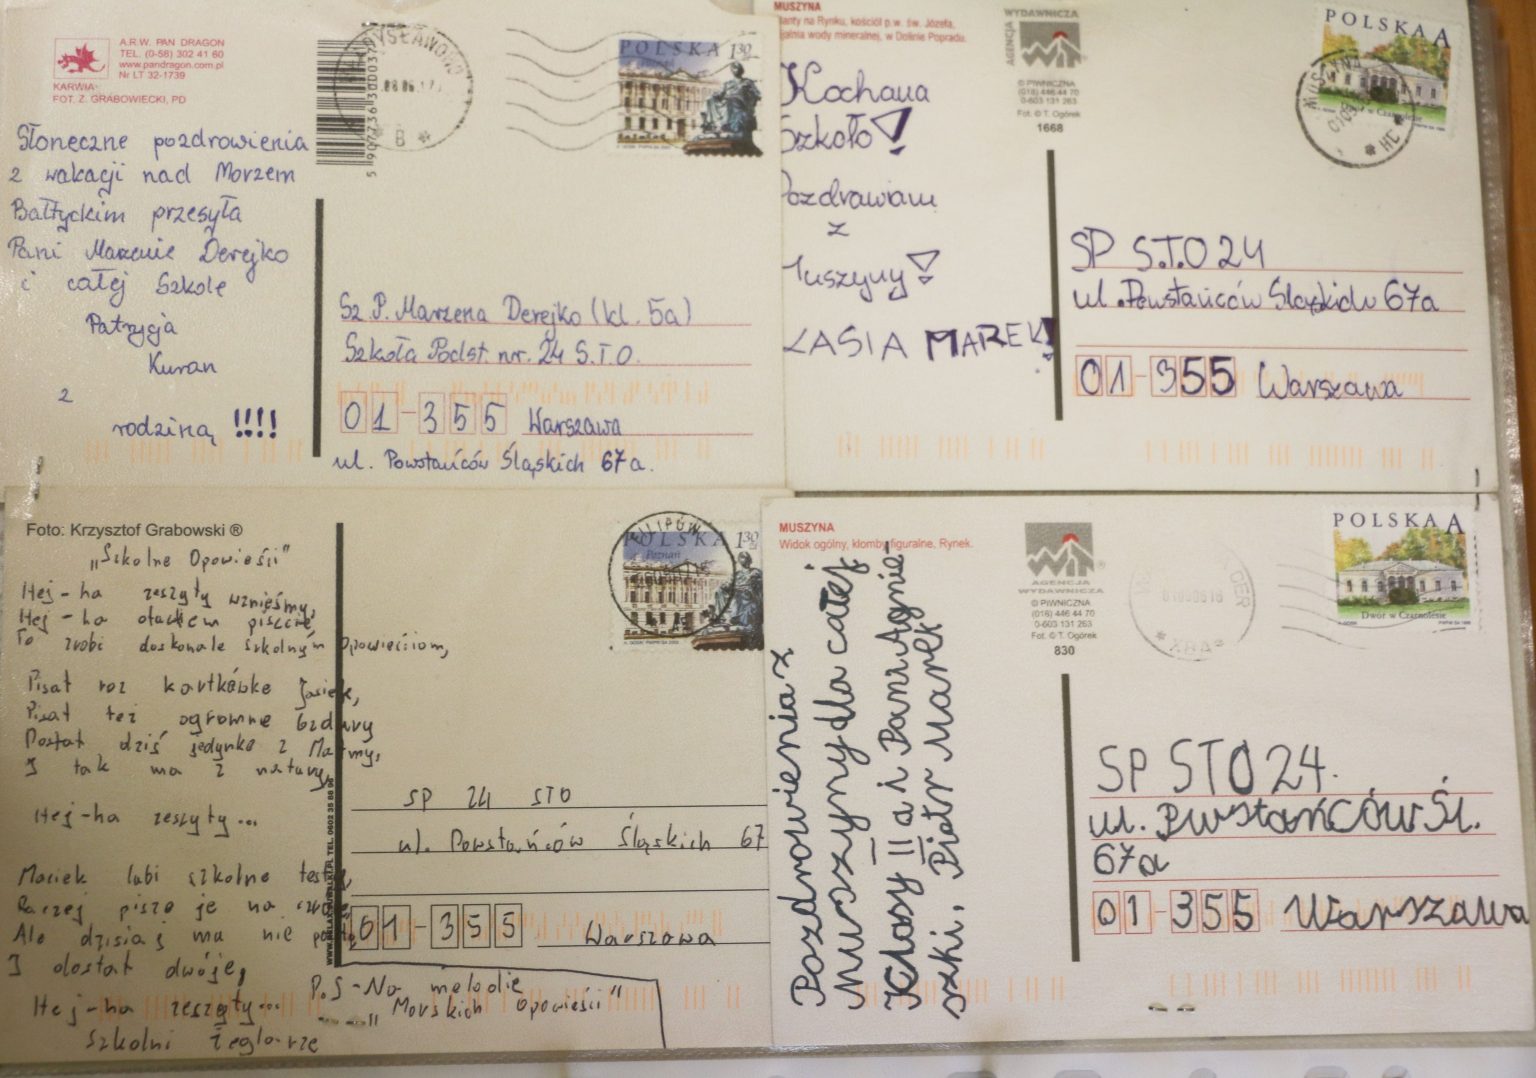 A.R.W. PAN DRAGON
TEL. (0-58) 302 41 60
www.pandragon.com.pl
Nr LT 32-1739
KARWIA
FOT. Z. GRABOWIECKI, PD
Słoneczne pozdrowienia
z wakacji nad Morzem
Bałtyckim przesyła
Pani Marzenie Derejko
i całej Szkole
Patrycja
Kuran
z
rodziną !!!!
POLSKA 130
Sz. P. Marzena Derejko (kl. 5a)
Szkoła Podst. nr. 24 S.T.O.
01-355 Warszawa
ul. Powstańców Śląskich 67a.
MUSZYNA
Planty na Rynku, kościół p.w. św. Józefa,
pijalnia wody mineralnej, w Dolinie Popradu.
AGENCJA
WYDAWNICZA
© PIWNICZNA
(018) 446 44 70
0-603 131 263
Fot. © T. Ogórek
1668
Kochana
Szkoło!
Pozdrawiam
z
Muszyny!
KASIA MAREK!
POLSKA A
MUSZYNA
SP S.T.O 24
ul. Powstańców Śląskich 67a
01-355 Warszawa
Foto: Krzysztof Grabowski ®
„Szkolne Opowieści"
Hej-ha zeszyty wznieśmy,
Hej-ha
To zrobi doskonale szkolnym Opowieściom,
Pisał raz kartkówkę Jasiek,
Pisał też ogromne bzdury
Dostał dziś jedynkę z Matmy,
I tak ma z natury,
Hej-ha zeszyty...
Maciek lubi szkolne testy,
Raczej pisze je na
Ale dzisiaj mu nie
I dostał dwóję,
Hej-ha zeszyty...
Szkolni Żeglarze
P.S-Na melodię
„Morskich opowieści"
FILIPÓW
POLSKA 130
Poznań
SP 24 STO
ul. Powstańców Śląskich 67
01-355 Warszawa
MUSZYNA
Widok ogólny, klomby figuralne, Rynek.
AGENCJA
WYDAWNICZA
© PIWNICZNA
(018) 446 44 70
0-603 131 263
Fot. © T. Ogórek
830
Pozdrowienia z
Muszyny dla całej
Klasy II a i Pani Agnie-
szki. Piotr Marek
POLSKA A
Dwór w Czarnolesie
SP STO 24.
ul. Pwstańców Śl.
67a
01-355 Warszawa